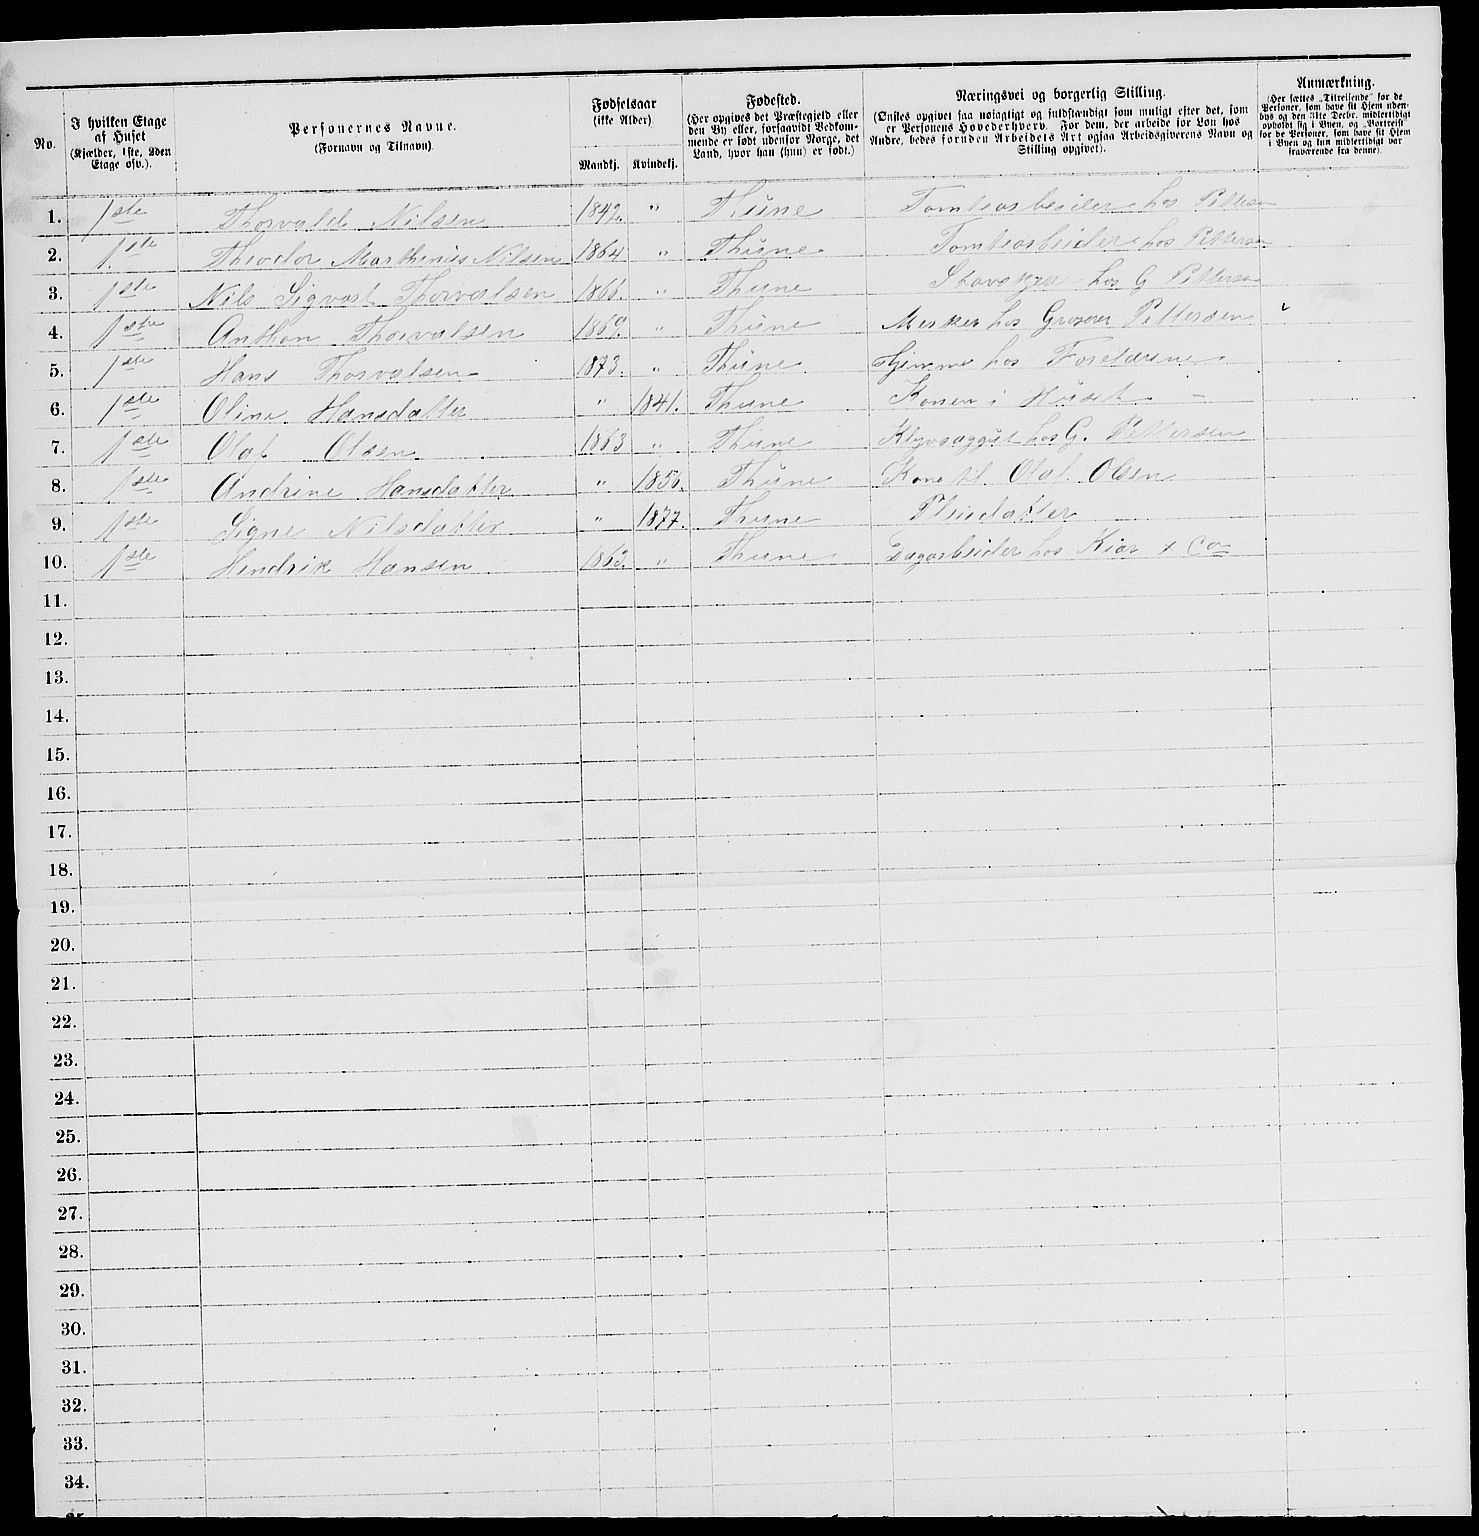 No.
I hvilken Etage af Huset
(Kjælder, 1ste, 2den Etage osv.).
Personernes Navne.
(Fornavn og Tilnavn).
Fødselsaar
(ikke Alder).
Mandkj. Kvindekj.
Fødested.
(Her opgives det Præstegjeld eller
den By eller, forsaavidt Vedkom-
mende er født udenfor Norge, det
Land, hvor han (hun) er født.)
Næringsvei og borgerlig Stilling.
(Ønskes opgivet saa nøiagtigt og fuldstændigt som muligt efter det, som
er Personens Hovederhverv. For dem, der arbeide for Løn hos
Andre, bedes foruden Arbeidets Art ogsaa Arbeidsgiverens Navn og
Stilling opgivet).
Anmærkning.
(Her sættes „Tilreisende" for de
Personer, som have sit Hjem uden-
bys og den 31te Decbr. midlertidigt
opholdt sig i Byen, og „Bortreist"
for de Personer, som have sit Hjem
i Byen og kun midlertidigt var
fraværende fra denne).
1. 1ste Thorvald Nilsen 1842. " Thune Tomtearbeider hos Pettersen
2. 1ste Theodor Marthinius Nilsen 1864 " Thune Tomtearbeider hos Pettersen
3. 1ste Nils Sigvart Thorvalsen 1866. " Thune hos G Pettersen
4. 1ste Anthon Thorvalsen 1869. " Thune Merker hos Groserer Pettersen
5. 1ste Hans Thorvalsen 1873. " Thune Hjemme hos Foreldrene
6. 1ste Oline Hansdatter " 1841. Thune Konen i Huset
7. 1ste Olaf Olsen 1863 " Thune hos G. Pettersen
8. 1ste Andrine Hansdatter " 1856. Thune Kone til Olaf Olsen
9. 1ste Signe Nilsdatter " 1877. Thune Pleiedatter
10. 1ste Hendrik Hansen 1863. " Thune Dagarbeider hos Kiær & Co
11.
12.
13.
14.
15.
16.
17.
18.
19.
20.
21.
22.
23.
24.
25.
26.
27.
28.
29.
30.
31.
32.
33.
34.